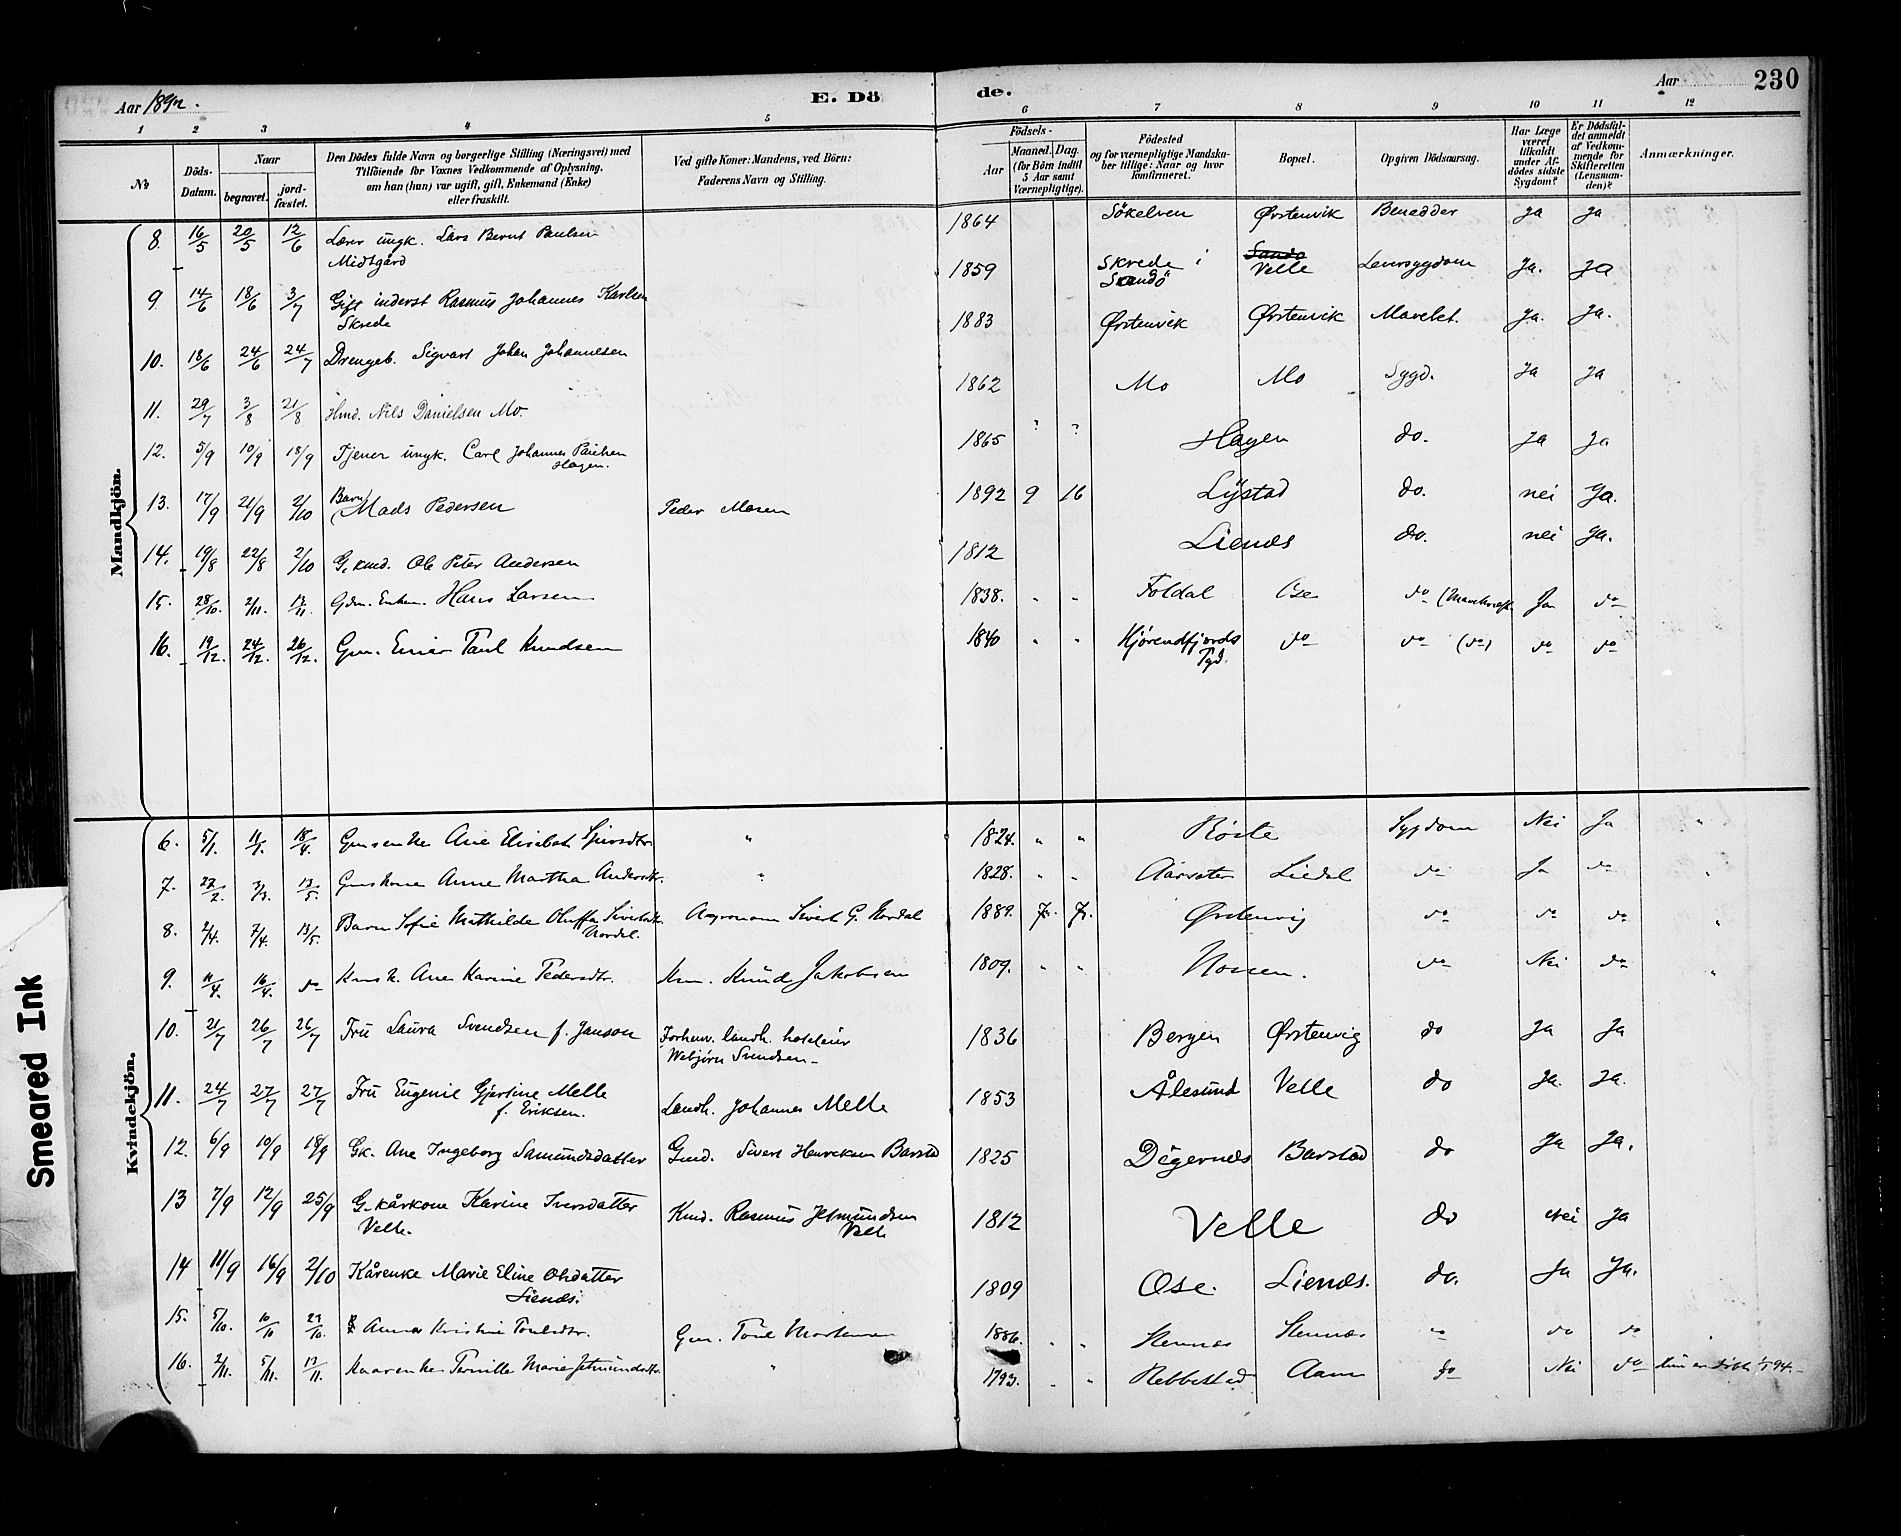 Aar 1892.
E. Dö
de.
Aar
230
1 2 3 4 5 6 7 8 9 10 11 12
No
Döds-
Datum.
Naar
begravet.
jord-
fæstet.
Den Dödes fulde Navn og borgerlige Stilling (Næringsvei) med
Tilföiende for Voxnes Vedkommende af Oplysning,
om han (hun) var ugift, gift, Enkemand (Enke)
eller fraskilt.
Ved gifte Koner: Mandens, ved Börn:
Faderens Navn og Stilling.
Födsels-
Aar
Maaned. Dag.
(for Börn indtil
5 Aar samt
Værnepligtige).
Födested
og for værnepligtige Mandska-
ber tillige: Naar og hvor
konfirmeret.
Bopæl.
Opgiven Dödsaarsag.
Har Læge
været
tilkaldt
under Af-
dödes sidste
Sygdom?
Er Dödsfal-
det anmeldt
af Vedkom-
mende for
Skifteretten
(Lensman-
den)?
Anmærkninger.
Mandkjön.
8. 16/5 20/5 12/6 Lærer ungk. Lars Bernt Paulsen
Midtgård
1864 Sökelven Ørstenvik Benedder ja ja
9 14/6 18/6 3/7 Gift inderst Rasmus Johannes Karlsen
Skrede
1859 Skrede i
Sandö
Velle Leversygdom Ja. ja
10. 18/6 24/6 24/7 Drengeb. Sigvart Johan Johannesen
1883 Ørstenvik Ørstenvik Ja. Ja.
11. 29/7 3/8 21/8 Hmd. Nils Danielsen Mo.
1862 Mo Mo Sygd. Ja Ja
12. 5/9 10/9 18/9 Tjener ungk. Carl Johannes Paulsen
Hagen.
1865 ? ? Hagen do. ja ja
13. 17/9 21/9 2/10 Barn
Mads Pedersen Peder Masen 1892 9 16 Lystad do. nei Ja.
14. 19/8 22/8 2/10 G. kmd. Ole Peter Andersen 1812 Lienæs do. nei Ja.
15. 28/10. 2/11. 13/11. Gdm. Enkem. Hans Larsen 1838. " " Foldal Ose do Ja do
16. 19/12. 24/12. 26/12. Gm. Einar Paul Knudsen 1840 " " Kjörendfjords
Pgd.
do do (do) do do
Kvindekjön.
6. 5/1. 11/1. 18/4. Gmsenke Ane Elisabet Sjursdtr. " 1824. " " Röste Sygdom Nei Ja "
7. 27/2. 3/3. 13/5. Gmskone Anne Martha Andersdtr. " 1828. " " Aarsæter Liedal do Ja do
8. 2/4. 7/4. 13/5. Barn Sofie Mathilde Oluffa Sivertsdtr.
Nordal.
Agronom Sivert G. Nordal 1889. 7. 7. Ørstenvig do do do "
9. 11/4. 16/4. do Kmsk. Ane Karine Pedersdtr. Km. Knud Jakobsen 1809. " " Nossen. do Nei do "
10. 21/7 26/7 26/7 Fru Laura Svendsen f. Janson Forhenv. landh. hoteleier
Webjörn Svendsen
1836 Bergen Ørstenvig do Ja Ja
11. 24/7 27/7 27/7 Fru Eugenie Gjertine Melle
f. Eriksen.
Landh. Johannes Melle 1853 Ålesund Velle do Ja. Ja.
12. 6/9 10/9 18/9 Gk. Ane Ingeborg Samundsdatter Gmd. Sivert Henriksen Barstad 1825 Digernæs Barstad do Ja Ja.
13 7/9 12/9 25/9 G. kårkone Karine Iversdatter
Velle.
Kmd. Rasmus Jetmundsen
Velle
1812 Velle do Nei Ja
14 11/9 16/9 2/10 Kårenke Marie Eline Olsdatter
Lienæs.
1809 Ose. Lienæs. do. Ja Ja.
15. 5/10. 10/10 23/10. Anna Kristine Poulsdtr. Gm. Poul Mortensen 1886. " " Stennæs Stennæs do do do "
16. 2/11. 5/11. 13/11. Kaarenke Pernille Marie Jetmundsdtr. " 1793. " " Rebbestad Aam do Nei do Hun er född 1/1 94.
Smeared Ink